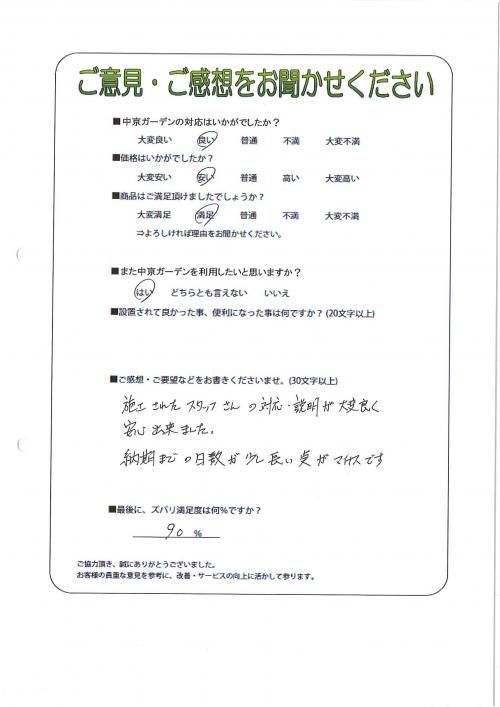 ご意見・ご感想をお聞かせください
■中京ガーデンの対応はいかがでしたか？
大変良い 良い 普通 不満 大変不満
■価格はいかがでしたか？
大変安い 安い 普通 高い 大変高い
■商品はご満足頂けましたでしょうか？
大変満足 満足 普通 不満 大変不満
⇒よろしければ理由をお聞かせください。
■また中京ガーデンを利用したいと思いますか？
はい どちらとも言えない いいえ
■設置されて良かった事、便利になった事は何ですか？(20文字以上)
■ご感想・ご要望などをお書きくださいませ。(30文字以上)
施工されたスタッフさんの対応・説明が大変良く
安心出来ました。
納期までの日数が少し長い点がマイナスです
■最後に、ズバリ満足度は何％ですか？
90 ％
ご協力頂き、誠にありがとうございました。
お客様の貴重な意見を参考に、改善・サービスの向上に活かして参ります。